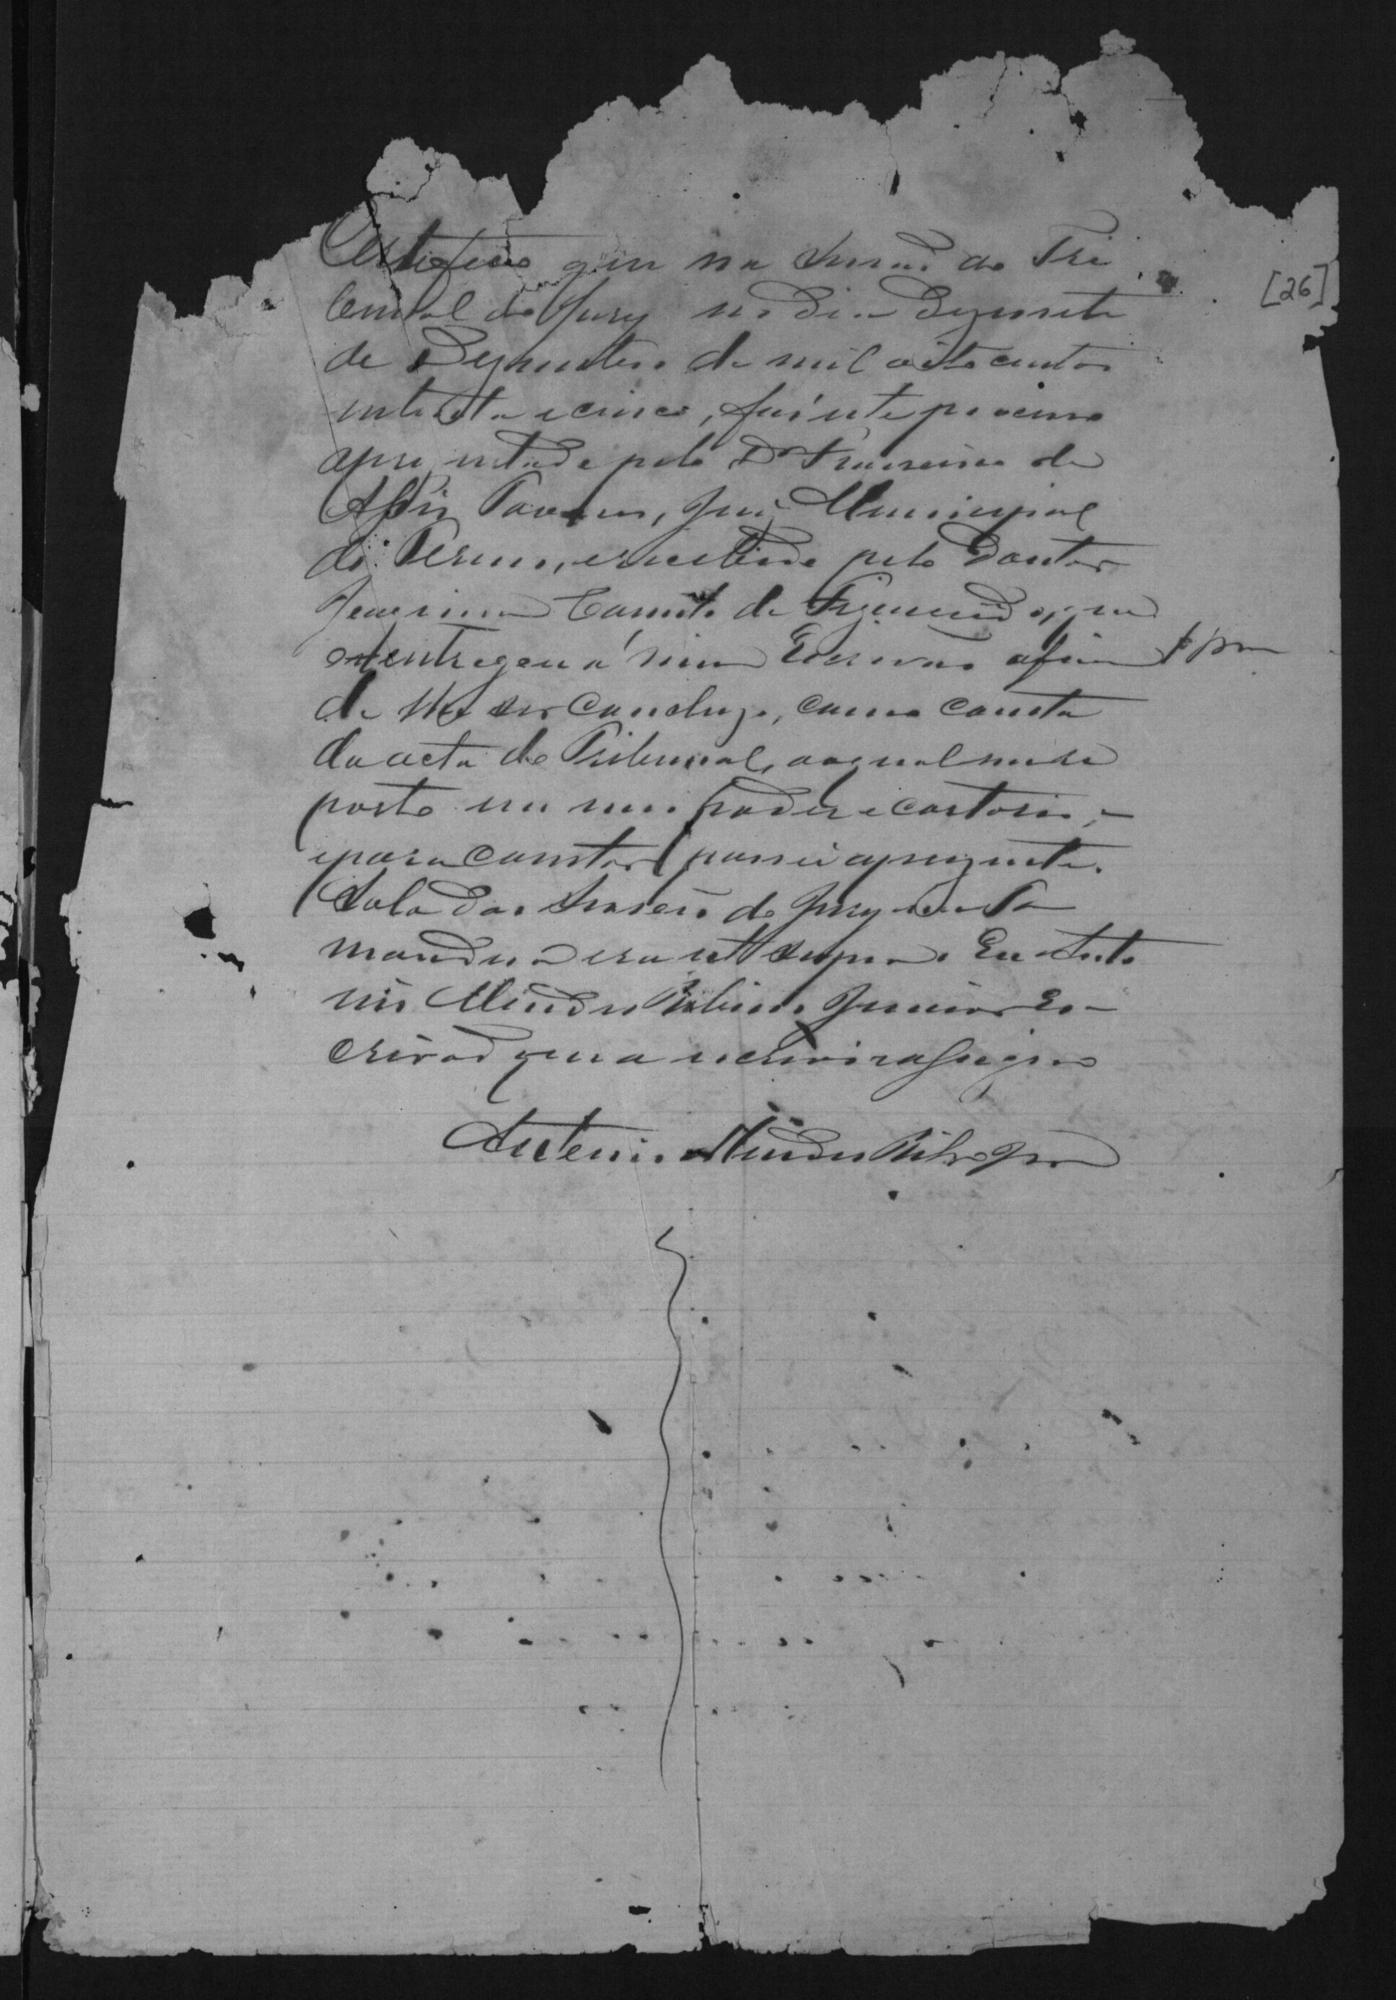 Certefico que na Sessaõ do Tri
bunal do Jury no dia Dezesete
de Dezembro de mil oito centos
setenta e cinco, foi este processo
apresentado pelo Dr Francisco de
Assis Tavares, Juiz Municipal
do Termo, e recebido pelo Doutor
Camello de Figueiredo, que
entregou a mim Escrivaõ afim
de lhe ser concluzo, como consta
da acta do Tribunal, a qual me
reporto em meu poder e cartorio;
e para constar passei a prezente.
Sala das Sessoẽs do Jury
era ut supra. Eu Anto
nio Mendes Ribeiro Junior Es-
crivaõ que a escrevi e assigno
Antonio Mendes Ribrº Jor
[26]